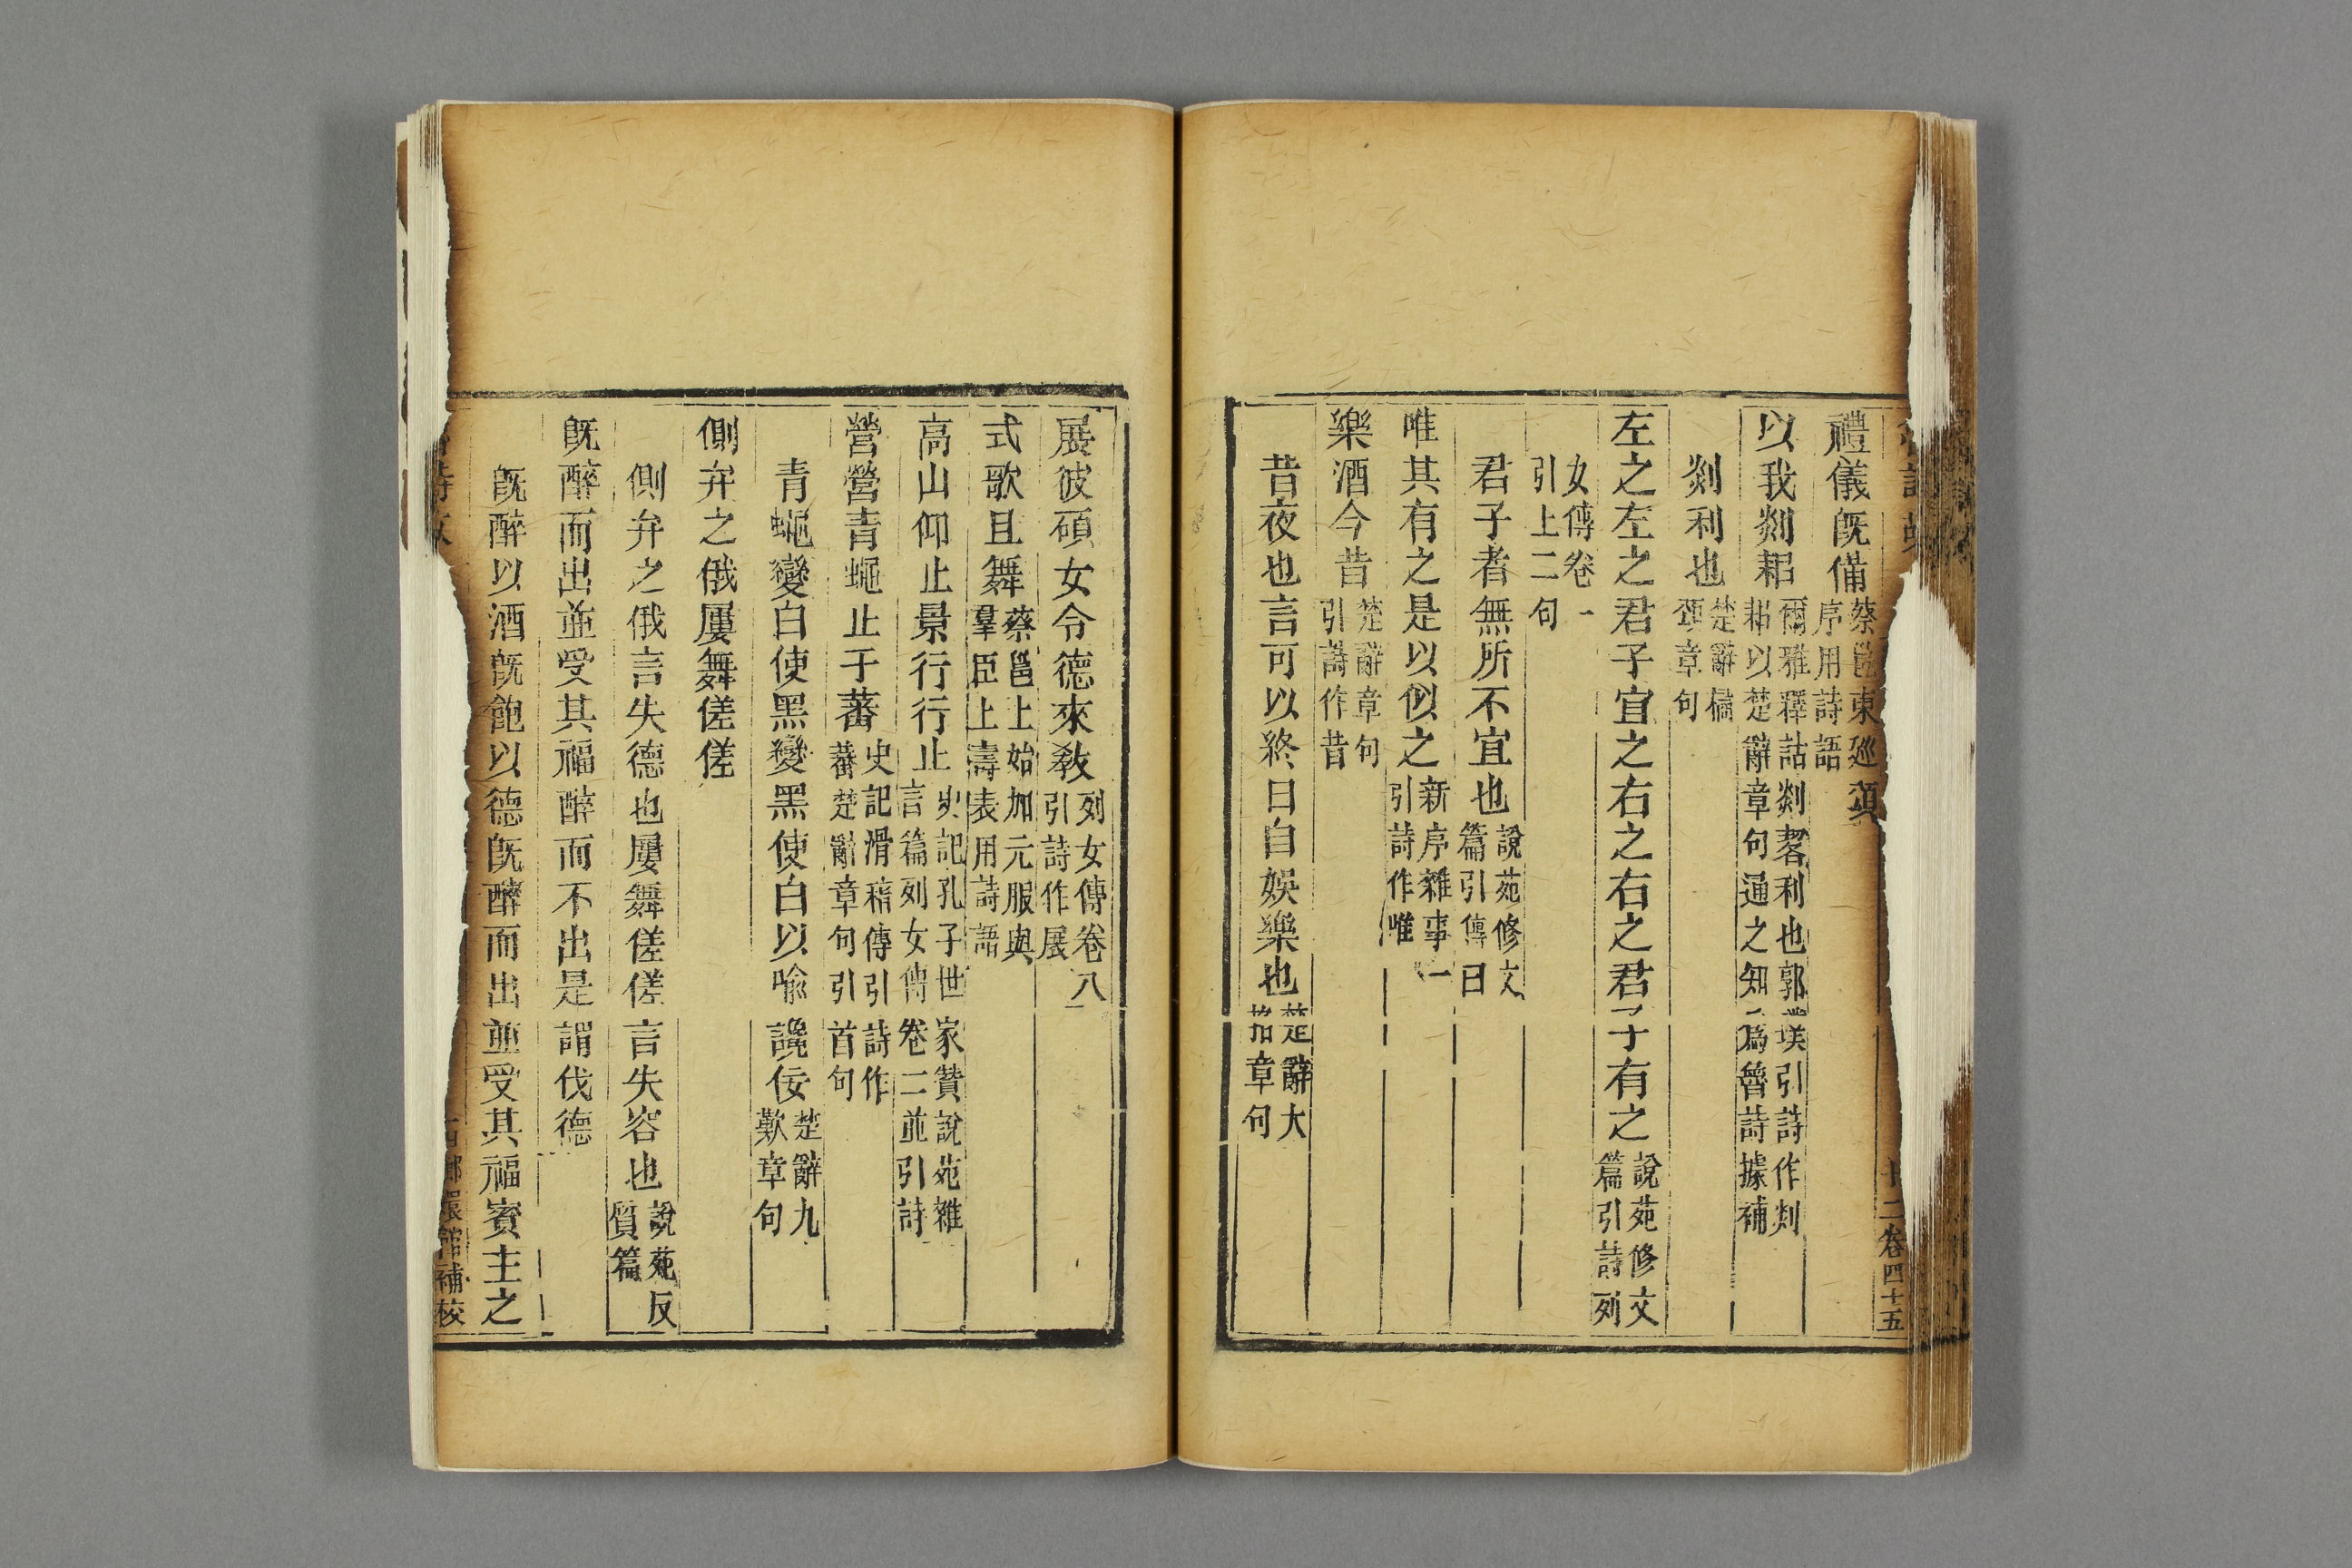 禮儀旣備蔡邕東廵頌序用詩語
以我剡耜爾雅釋詁剡䂮利也郭璞引詩作剡耜以楚辭章句通之知爲魯詩據補
剡利也楚辭橘頌章句
左之左之君子宜之右之右之君子有之說苑修文篇引詩列
女傳卷一引上二句
君子者無所不宜也說苑修文篇引傳曰
唯其有之是以似之新序雜事一引詩作唯
樂酒今昔楚辭章句引詩作昔
昔夜也言可以終日自娛樂也楚辭大招章句
卷四十五
展彼碩女令德來敎列女傳卷八引詩作展
式歌且舞蔡邕上始加元服與羣臣上壽表用詩語
高山仰止景行行止史記孔子世家贊說苑雜言篇列女傳卷二並引詩
營營青蠅止于蕃史記滑稽傳引詩作蕃楚辭章句引首句
青蠅變白使黑變黑使白以喩讒佞楚辭九歎章句
側弁之俄屢舞傞傞
側弁之俄言失德也屢舞傞傞言失容也說苑反質篇
旣醉而出並受其福醉而不出是謂伐德
旣醉以酒旣飽以德旣醉而出並受其福賓主之
館補校